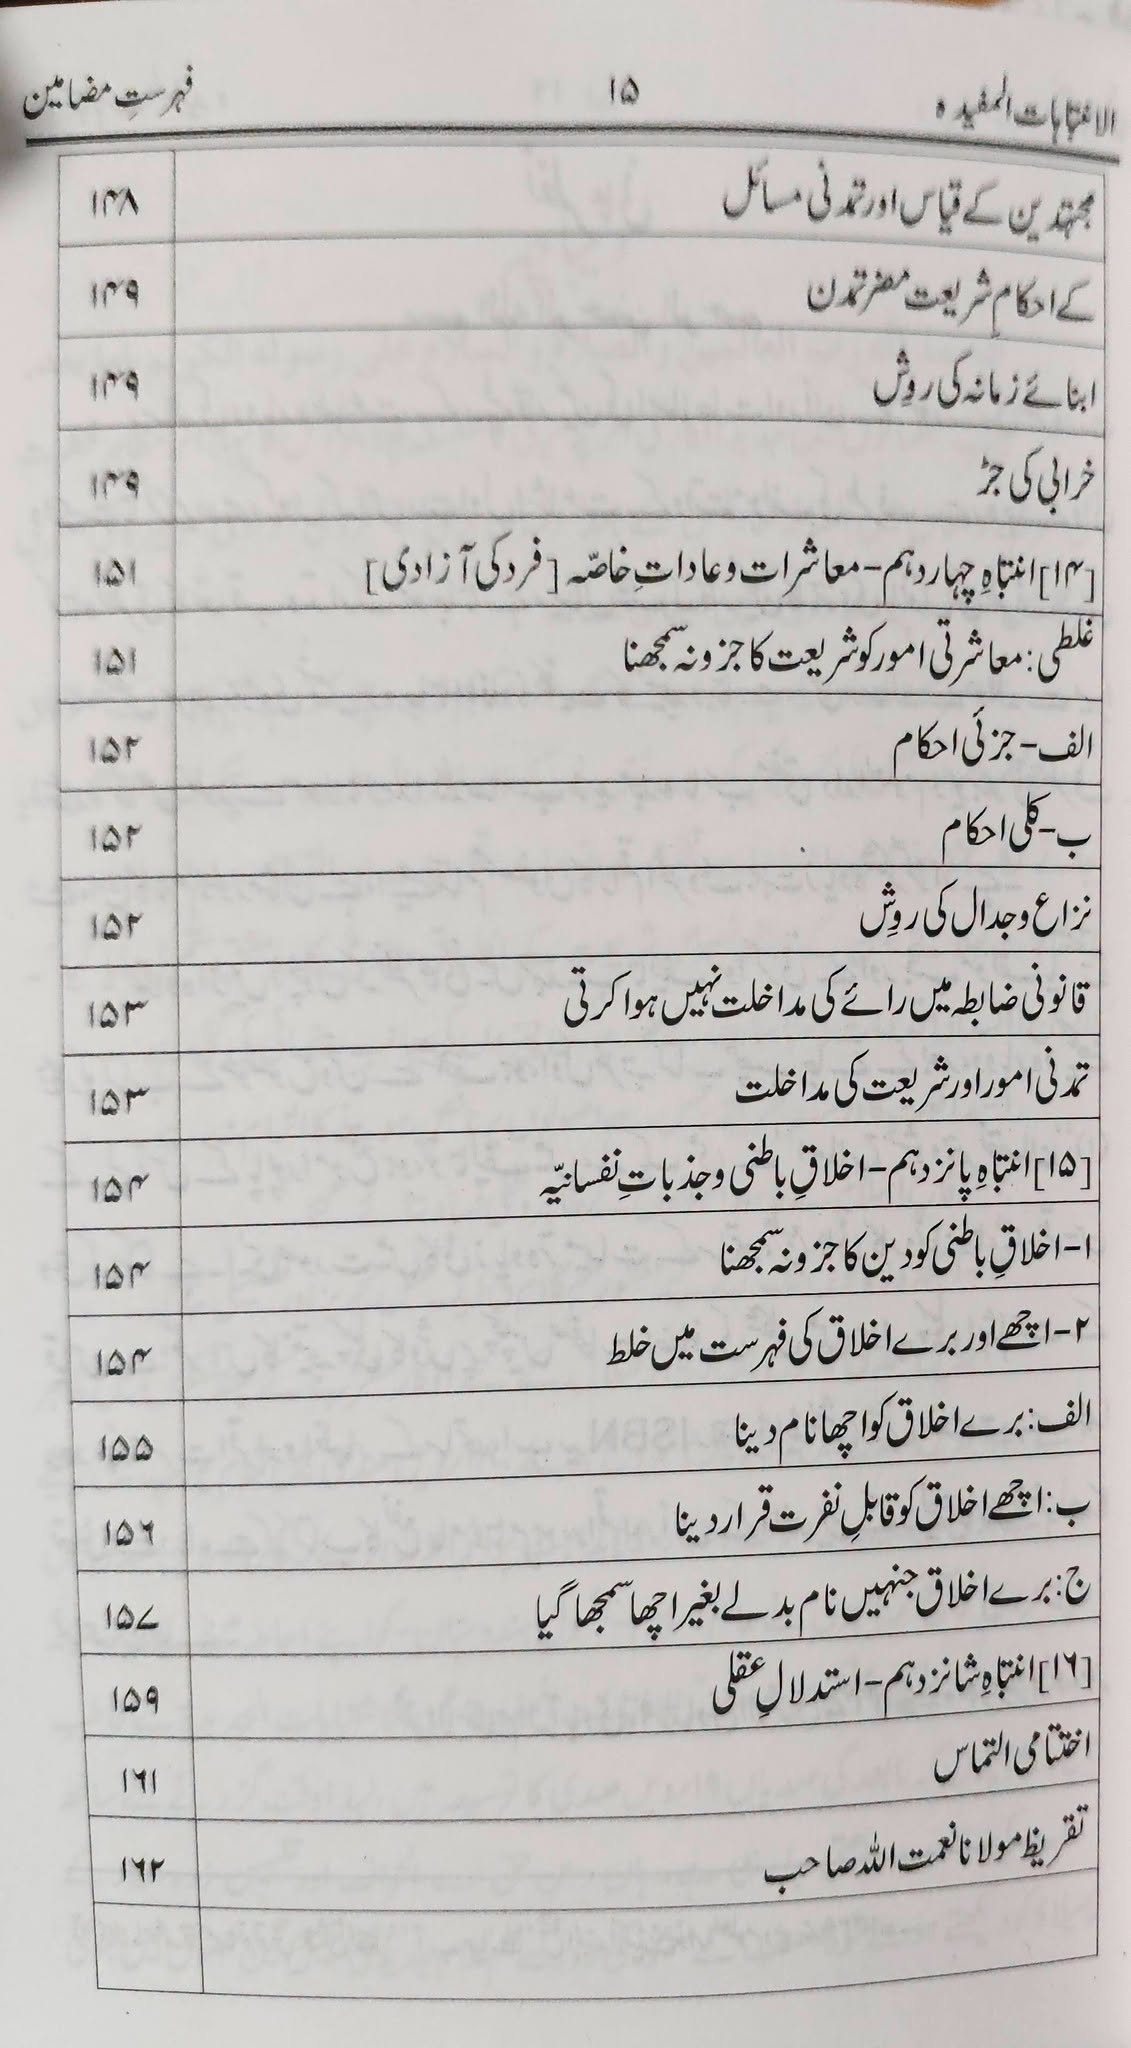 الانتباہات المفیدہ ۱۵ فہرستِ مضامین
مجتہدین کے قیاس اور تمدنی مسائل ۱۴۸
کے احکامِ شریعت مضر تمدن ۱۴۹
ابنائے زمانہ کی روِش ۱۴۹
خرابی کی جڑ ۱۴۹
[۱۴] انتباہِ چہار دہم – معاشرات و عاداتِ خاصّہ [فرد کی آزادی] ۱۵۱
غلطی: معاشرتی امور کو شریعت کا جزو نہ سمجھنا ۱۵۱
الف – جزئی احکام ۱۵۲
ب – کلی احکام ۱۵۲
نزاع و جدال کی روِش ۱۵۲
قانونی ضابطہ میں رائے کی مداخلت نہیں ہوا کرتی ۱۵۳
تمدنی امور اور شریعت کی مداخلت ۱۵۳
[۱۵] انتباہِ پانزدہم – اخلاقِ باطنی و جذباتِ نفسانیّہ ۱۵۴
۱- اخلاقِ باطنی کو دین کا جزو نہ سمجھنا ۱۵۴
۲- اچھے اور برے اخلاق کی فہرست میں خلط ۱۵۴
الف: برے اخلاق کو اچھا نام دینا ۱۵۵
ب: اچھے اخلاق کو قابلِ نفرت قرار دینا ۱۵۶
ج: برے اخلاق جنہیں نام بدلے بغیر اچھا سمجھا گیا ۱۵۷
[۱۶] انتباہِ شانزدہم – استدلالِ عقلی ۱۵۹
اختتامی التماس ۱۶۱
تقریظ مولانا نعمت اللہ صاحب ۱۶۲